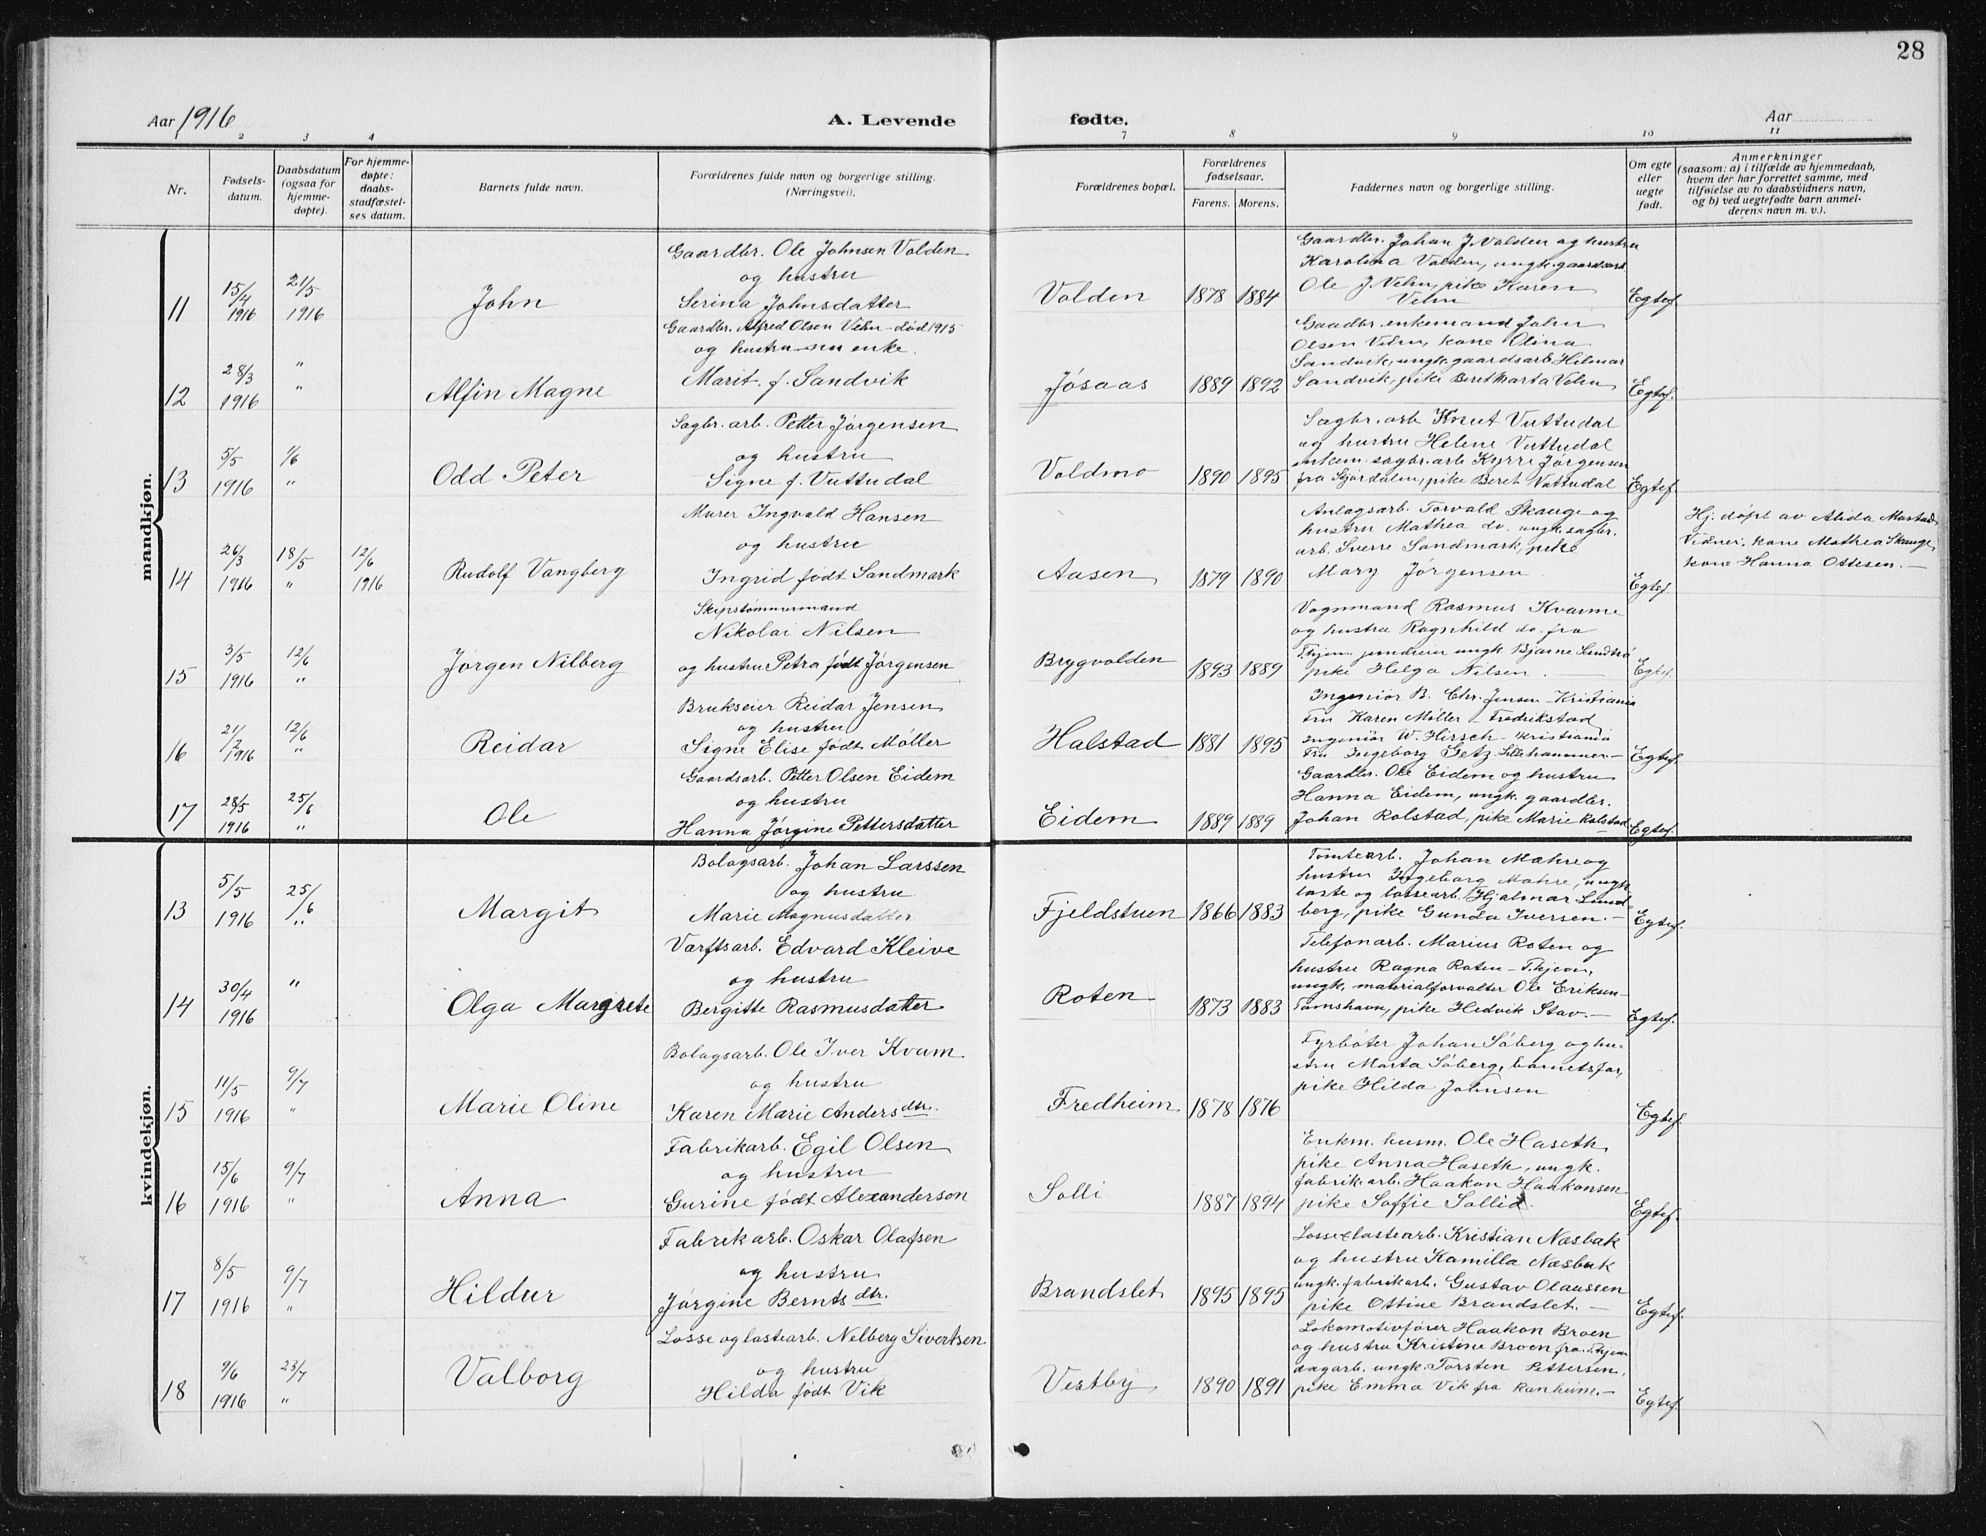 28
Aar 1916
A. Levende
fødte.
Aar
1 2 3 4
7 8 9 10 11
Nr.
Fødsels-
datum.
Daabsdatum
(ogsaa for
hjemme-
døpte).
For hjemme-
døpte:
daabs-
stadfæstel-
ses datum.
Barnets fulde navn.
Forældrenes fulde navn og borgerlige stilling.
(Næringsvei).
Forældrenes bopæl.
Forældrenes
fødselsaar.
Farens. Morens.
Faddernes navn og borgerlige stilling.
Om egte
eller
uegte
født.
Anmerkninger
(saasom: a) i tilfælde av hjemmedaab,
hvem der har forrettet samme, med
tilføielse av to daabsvidners navn,
og b) ved uegtefødte barn anmel-
derens navn m. v.).
mandkjøn.
11
15/4
1916
21/5
1916
John
Gaardbr. Ole Johnsen Volden
og hustru
Serina Johnsdatter
Volden
1878 1884
Gaardbr. Johan J. Volden og hustru
Karolina Volden, ungk. gaardsarb
Ole J. Vehn, pike Karen
Vehn
Egtef.
12
28/3
1916
"
"
Alfin Magne
Gaardbr. Alfred Olsen Vehn - død 1915
og hustru nu enke.
Marit. f. Sandvik
Jøsaas
1889 1892
Gaardbr. enkemand John
Olsen Vehn, kone Olina
Sandvik, ungk. gaardsarb. Hilmar
Sandvik, pike Beret Marta Vehn
Egtef.
13
5/5
1916
4/6
"
Odd Peter
Sagbr. arb. Petter Jørgensen
og hustru
Signe f. Vuttudal
Voldmo
1890 1895
Sagbr. arb Knut Vuttudal
og hustru Helene Vuttudal
enkem. sagbr. arb Kyrre Jørgensen
fra Stjørdalen, pike Beret Vuttudal
Egtef.
14
26/3
1916
18/5
"
12/6
1916
Rudolf Vangberg
Murer Ingvald Hansen
og hustru
Ingrid født Sandmark
Aasen
1879 1890
Anlagsarb. Torvald Skauge og
hustru Mathea do. ungk. sagbr.
arb. Sverre Sandmark, pike
Mary Jørgensen
Egtef.
Hj. døpt av Alida Mostad,
Vidner, kone Mathea Skauge,
kone Hanna Ottesen. -
15
3/5
1916
12/6
"
Jørgen Nilberg
Skipstømmermand
Nikolai Nilsen
og hustru Petra født Jørgensen
Brygvolden
1893 1889
Vognmand Rasmus Kvamme
og hustru Ragnhild do. fra
T.hjem. ungk Bjarne
pike Helga Nilsen. -
Egtef.
16
21/2
1916
12/6
"
Reidar
Brukseier Reidar Jensen
og hustru
Signe Elise født Møller
Halstad
1881 1895
Ingeniør B. Chr. Jensen - Kristiania
Fru Karen Møller - Fredrikstad
Ingeniør W. Hirsch - Kristiania
Fru Ingeborg Getz. Lillehammer -
Egtef.
17
28/5
1916
25/6
"
Ole
Gaardsarb. Petter Olsen Eidem
og hustru
Hanna Jørgine Pettersdatter
Eidem
1889 1889
Gaardbr. Ole Eidem og hustru
Hanna Eidem, ungk. gaardbr.
Johan Rolstad, pike Marie Rolstad
Egtef.
kvindekjøn.
13
5/5
1916
25/6
"
Margit
Bolagsarb. Johan Larssen
og hustru
Marie Magnusdatter
Fjeldstuen
1866 1883
Tomtearb. Johan Mæhre og
hustru Ingeborg Mæhre, ungk.
laste og lossearb. Hjalmar Lund-
berg, pike Gunda Iversen. -
Egtef.
14
30/4
1916
"
Olga Margrete
Værftsarb. Edvard Kleive
og hustru
Bergitte Rasmusdatter
Roten
1873 1883
Telefonarb. Marius Roten og
hustru Ragna Roten - T.hjem,
ungk, materialforvalter Ole Eriksen
Tomshavn, pike Hedvik Stav. -
Egtef.
15
11/5
1916
9/7
"
Marie Oline
Bolagsarb. Ole Iver Kvam
og hustru
Karen Marie Andersdtr.
Fredheim
1878 1876
Fyrbøter Johan Søberg og hu-
stru Marta Søberg, barnets far,
pike Hilda Johnsen
Egtef.
16
15/6
1916
9/7
"
Anna
Fabrikarb. Egil Olsen
og hustru
Gurine født Alexanderson
Solli
1887 1894
Enkm. husm. Ole Haseth
pike Anna Haseth, ungk.
fabrikarb. Haakon Haakonsen
pike Soffie Sollid.
Egtef.
17
8/5
1916
9/7
"
Hildur
Fabrikarb. Oskar Olafsen
og hustru
Jørgine Berntsdtr.
Brandslet
1895 1895
Losse & lastearb. Kristian Næsbak
og hustru Kamilla Næsbak
ungk. fabrikarb. Gustav Olaussen
pike Ottine Brandslet. -
Egtef.
18
9/6
1916
23/7
"
Valborg
Losse og lastearb. Nelberg Sivertsen
og hustru
Hilda født Vik
Vestby
1890 1891
Lokomotivfører Haakon Broen
og hustru Kristine Broen fra T.hjem
dagarb. ungk. Torsten Pettersen,
pike Emma Vik fra Ranheim. -
Egtef.